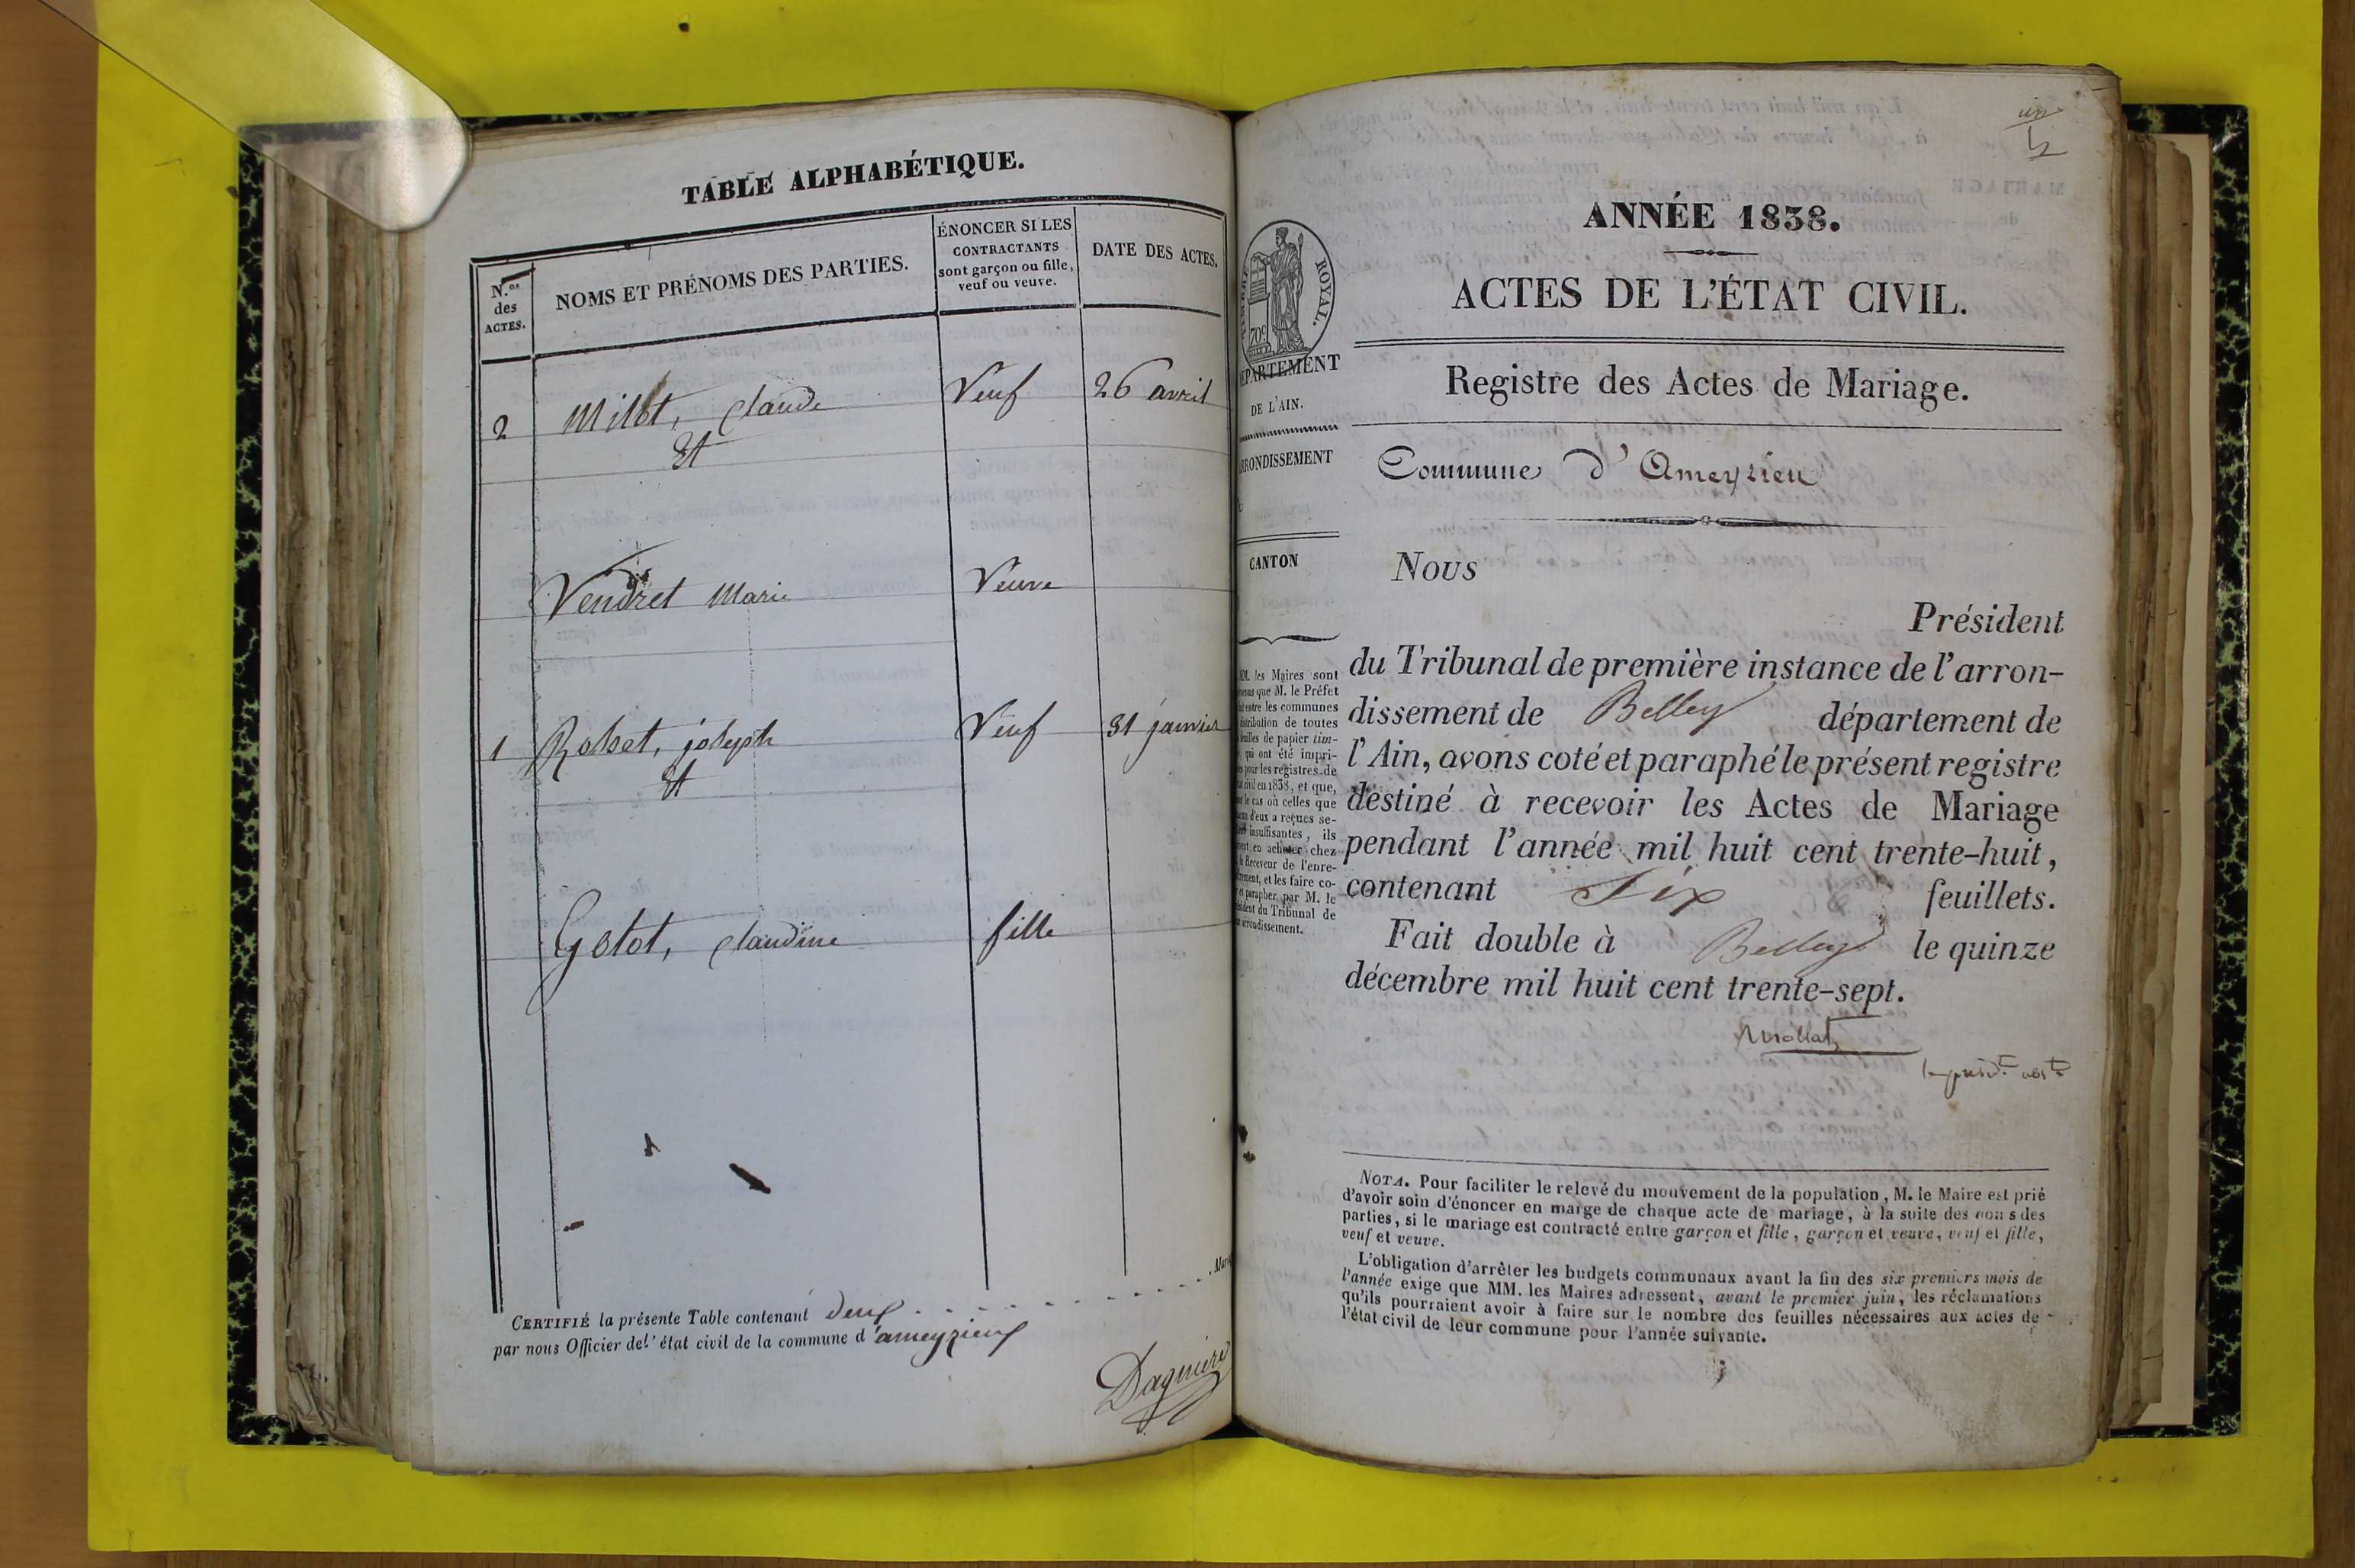 TABLE ALPHABÉTIQUE.
N.os des ACTES.
NOMS ET PRÉNOMS DES PARTIES.
ÉNONCER SI LES
CONTRACTANTS
sont garçon ou fille,
veuf ou veuve.
DATE DES ACTES.
2 Millot, Claude Veuf 26 avril
Et
Vendret Marie Veuve
1 Rosset, joseph Veuf 31 janvier
Et
Gotot, Claudine fille
CERTIFIÉ la présente Table contenant deux
par nous Officier del' état civil de la commune d'ameyzieux
ROYAL.
70c
DÉPARTEMENT
DE L'AIN.
ARRONDISSEMENT
CANTON
MM. les Maires sont
que M. le Préfet
entre les communes
distribution de toutes
feuilles de papier tim-
qui ont été impri-
pour les registres de
civil en 1838, et que,
le cas où celles que
d'eux a reçues se-
insuffisantes, ils
en acheter chez
le Receveur de l'enre-
et les faire co-
et parapher par M. le
Président du Tribunal de
arrondissement.
ANNÉE 1838.
ACTES DE L'ÉTAT CIVIL.
Registre des Actes de Mariage.
Commune d'Ameyzieu
Nous
Président
du Tribunal de première instance de l'arron-
dissement de Belley département de
l'Ain, avons coté et paraphé le présent registre
destiné à recevoir les Actes de Mariage
pendant l'année mil huit cent trente-huit,
contenant Six feuillets.
Fait double à Belley le quinze
décembre mil huit cent trente-sept.
NOTA. Pour faciliter le relevé du mouvement de la population, M. le Maire est prié
d'avoir soin d'énoncer en marge de chaque acte de mariage, à la suite des noms des
parties, si le mariage est contracté entre garçon et fille, garçon et veuve, veuf et fille,
veuf et veuve.
L'obligation d'arrêter les budgets communaux avant la fin des six premiers mois de
l'année exige que MM. les Maires adressent, avant le premier juin, les réclamations
qu'ils pourraient avoir à faire sur le nombre des feuilles nécessaires aux actes de
l'état civil de leur commune pour l'année suivante.